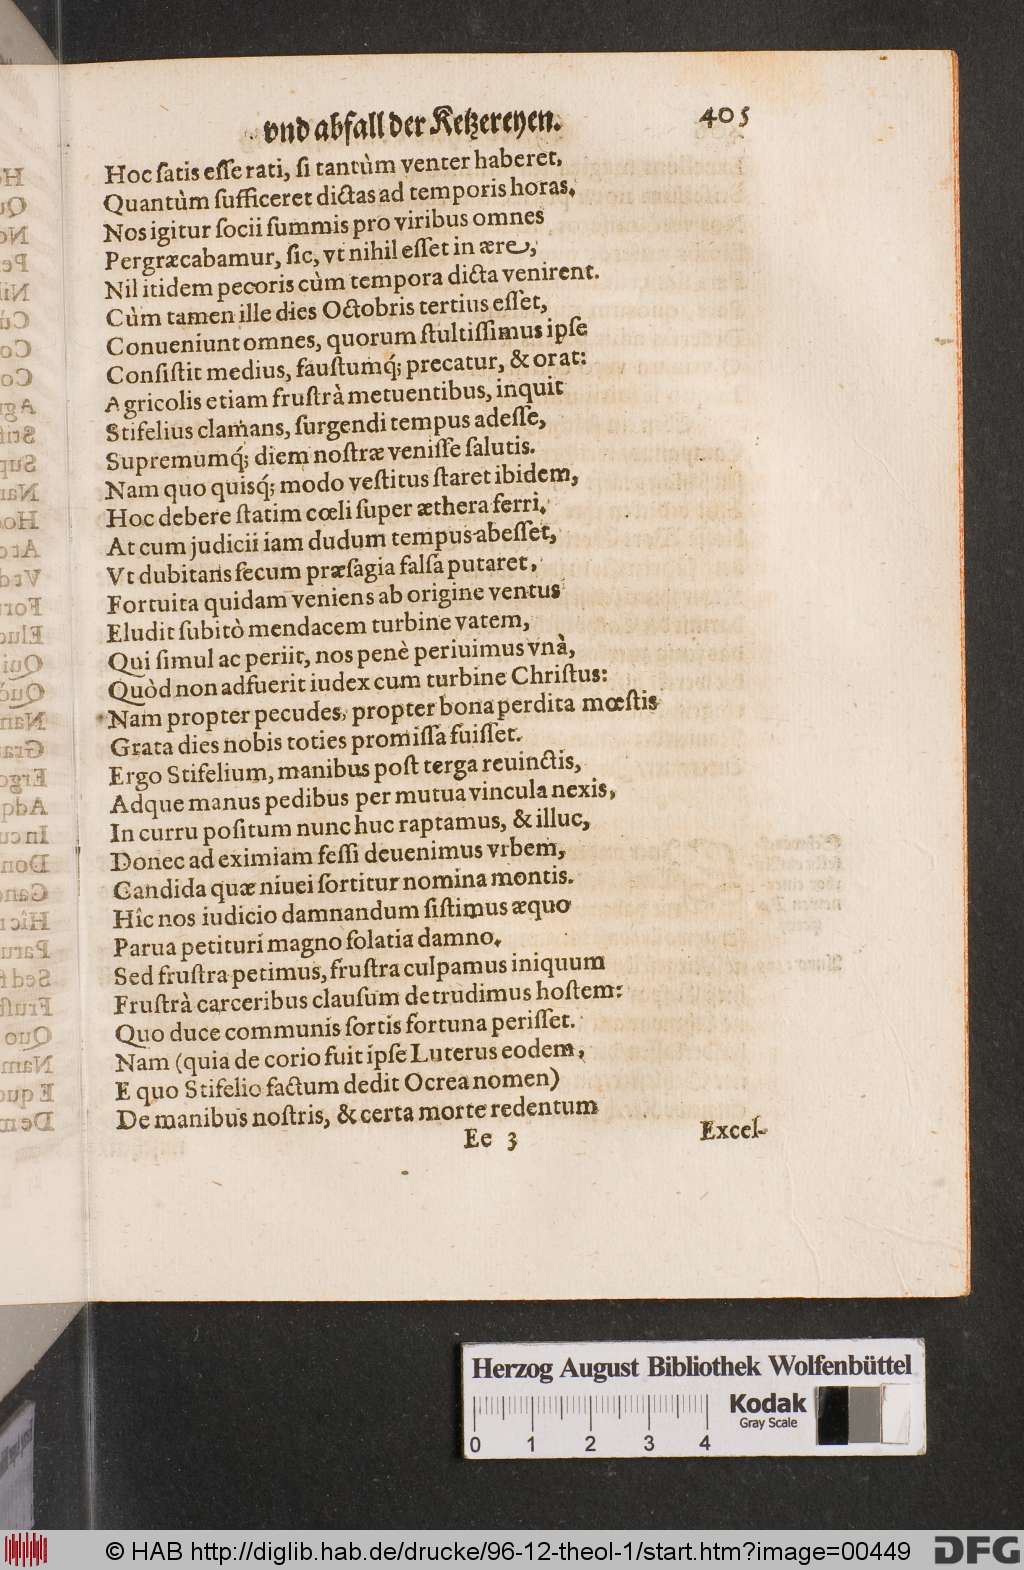 vnd abfall der Ketzereyen. 405
Hoc ſatis eſſe rati, ſi tantùm venter haberet,
Quantùm ſufficeret dictas ad temporis horas,
Nos igitur ſocii ſummis pro viribus omnes
Pergræcabamur, ſic, vt nihil eſſet in ære,
Nil itidem pecoris cùm tempora dicta venirent.
Cùm tamen ille dies Octobris tertius eſſet,
Conueniunt omnes, quorum ſtultiſſimus ipſe
Conſiſtit medius, fauſtumq́; precatur, & orat:
Agricolis etiam fruſtrà metuentibus, inquit
Stifelius clamans, ſurgendi tempus adeſſe,
Supremumq́; diem noſtræ veniſſe ſalutis.
Nam quo quisq́; modo veſtitus ſtaret ibidem,
Hoc debere ſtatim cœli ſuper æthera ferri,
At cum judicii iam dudum tempus abeſſet,
Vt dubitans ſecum præſagia falſa putaret,
Fortuita quidam veniens ab origine ventus
Eludit ſubitò mendacem turbine vatem,
Qui ſimul ac periit, nos penè periuimus vnà,
Quòd non adfuerit iudex cum turbine Chriſtus:
Nam propter pecudes, propter bona perdita mœſtis
Grata dies nobis toties promiſſa fuiſſet.
Ergo Stifelium, manibus poſt terga reuinctis,
Adque manus pedibus per mutua vincula nexis,
In curru poſitum nunc huc raptamus, & illuc,
Donec ad eximiam feſſi deuenimus vrbem,
Candida quæ niuei ſortitur nomina montis.
Hîc nos iudicio damnandum ſiſtimus æquo
Parua petituri magno ſolatia damno,
Sed fruſtra petimus, fruſtra culpamus iniquum
Fruſtrà carceribus clauſum detrudimus hoſtem:
Quo duce communis ſortis fortuna periſſet.
Nam (quia de corio fuit ipſe Luterus eodem,
E quo Stifelio factum dedit Ocrea nomen)
De manibus noſtris, & certa morte redentum
Ee 3 Excel-
Herzog August Bibliothek Wolfenbüttel
0 1 2 3 4
Kodak
Gray Scale
© HAB http://diglib.hab.de/drucke/96-12-theol-1/start.htm?image=00449
DFG